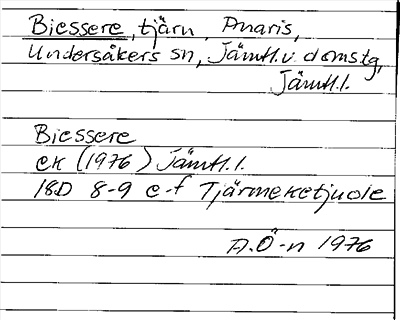 Biessere, tjärn, Anaris,
Undersåkers sn, Jämtl. v. domstg,
Jämtl. l.
Biessere
ek (1976) Jämtl. l.
18D 8-9 e-f Tjärmeketjuole
A.Ö-n 1976